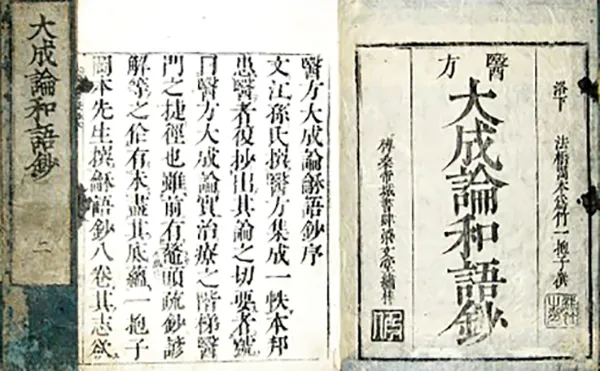 洛下 法橋岡本為竹一抱子撰
醫方
大成論和語鈔
醫方大成論龢語鈔序
文江孫氏撰醫方集成一帙本邦
醫者復抄出其論之切要者號
曰醫方大成論實治療之階梯醫
門之捷徑也雖前有鼇頭疏鈔諺
解等之有未盡其底蘊一抱子
岡本先生撰龢語鈔八卷其志欲
大成論和語鈔
二